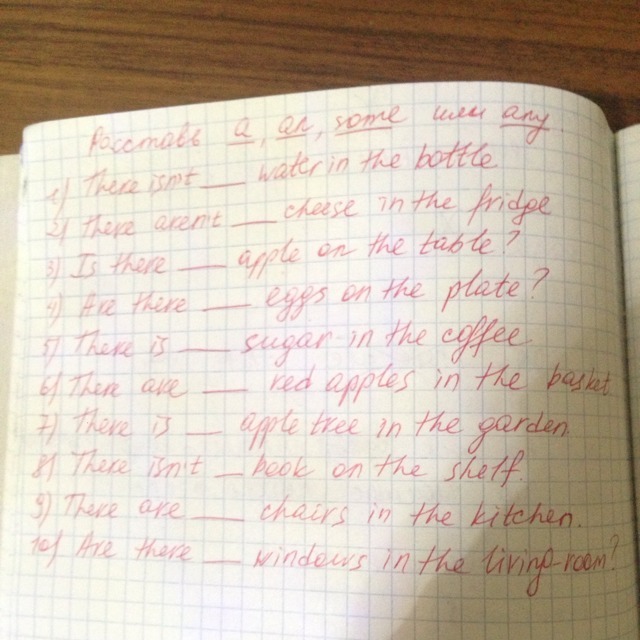 Расставь a, an, some или any.
1) There isn't ___ water in the bottle
2) There aren't ___ cheese in the fridge
3) Is there ___ apple on the table?
4) Are there ___ eggs on the plate?
5) There is ___ sugar in the coffee.
6) There are ___ red apples in the basket
7) There is ___ apple tree in the garden.
8) There isn't ___ book on the shelf.
9) There are ___ chairs in the kitchen.
10) Are there ___ windows in the living-room?